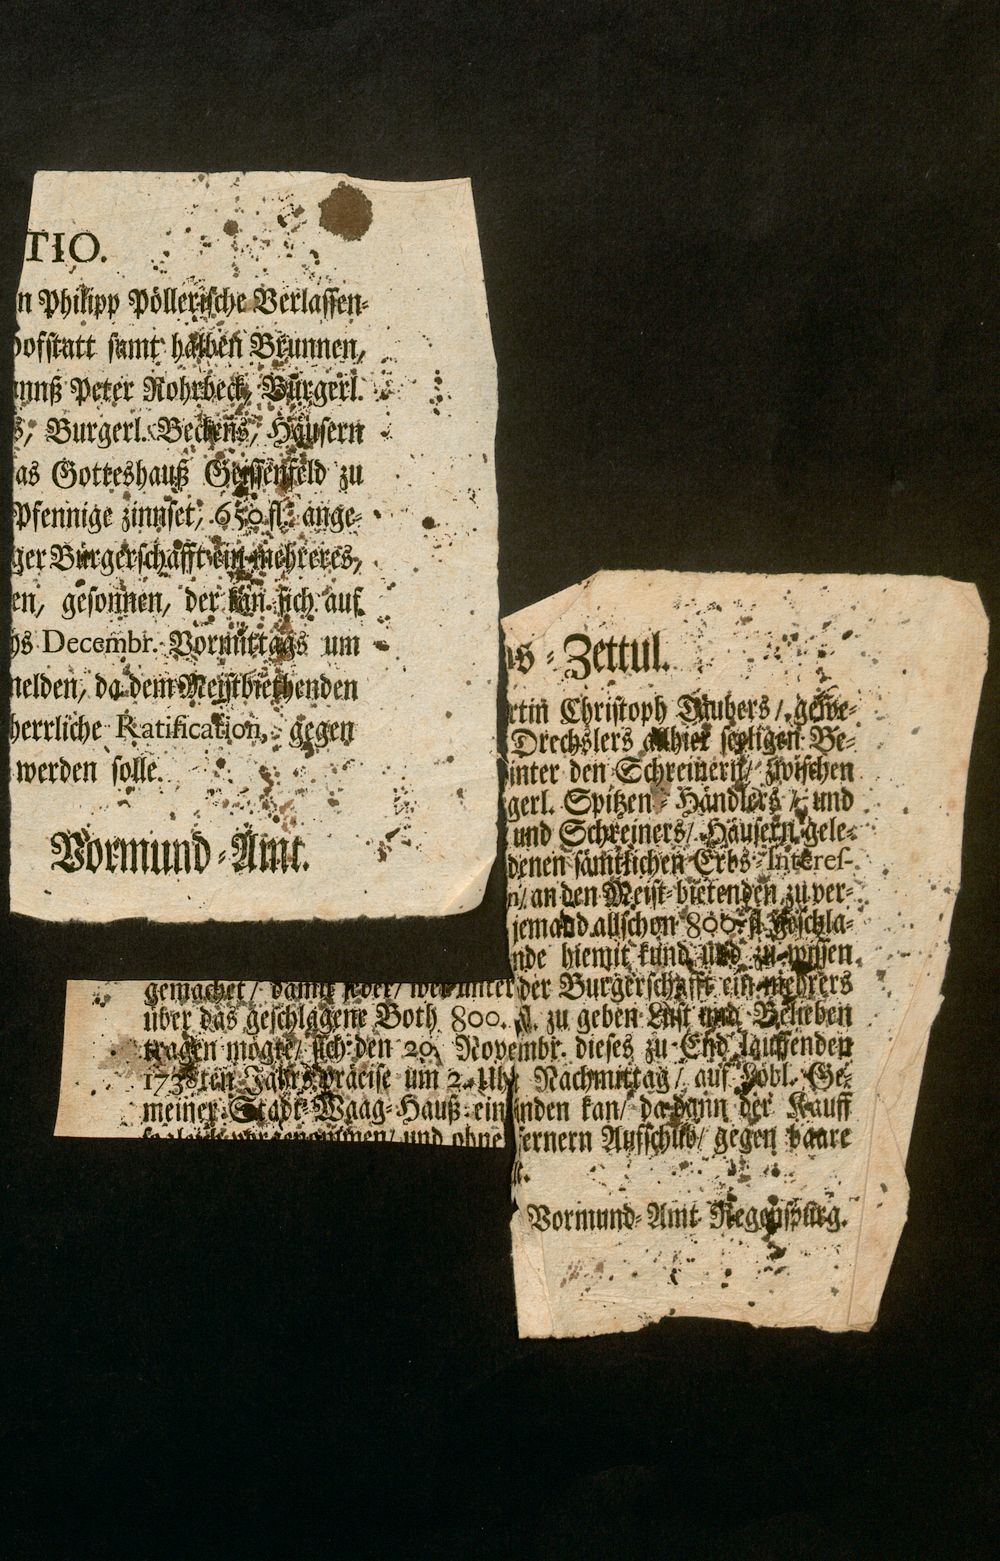 TIO.
n Philipp Pöllerische Verlassen-
ofstatt samt halben Brunnen,
annß Peter Rohrbeck, Burgerl.
s, Burgerl. Beckens, Häusern
as Gotteshauß Geissenfeld zu
Pfennige zinnset, 650 fl. ange-
ger Burgerschafft ein mehreres,
en, gesonnen, der kan sich auf
hs Decembr. Vormittags um
melden, da dem Meistbiethenden
herrliche Ratification, gegen
werden solle.
Vormund-Amt.
gs-Zettul.
rtin Christoph Taubers/ gewe-
Drechslers allhier seeligen Be-
inter den Schreinern/ zwischen
gerl. Spitzen-Händlers/ und
und Schreiners/ Häusern gele-
denen sämtlichen Erbs-Interes-
n/ an den Meist-bietenden zu ver-
jemand allschon 800. fl. geschla-
nde hiemit kund und zu wissen
gemachet/ damit jeder/ wer unter der Burgerschafft ein mehrers
über das geschlagene Both 800. fl. zu geben Lust und Belieben
tragen mögte/ sich den 20. Novembr. dieses zu End lauffenden
1738ten Jahrs præcise um 2. Uhr Nachmittag/ auf Löbl. Ge-
meiner Stadt-Waag-Hauß einfinden kan/ da dann der Kauff
sogleich vorgenommen/ und ohne fernern Aufschub/ gegen baare
Vormund-Amt Regenspurg.